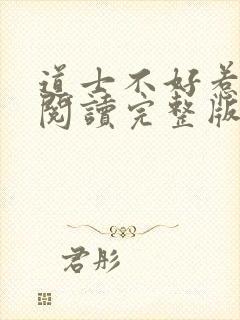 道士不好惹
閱讀完整版
君彤